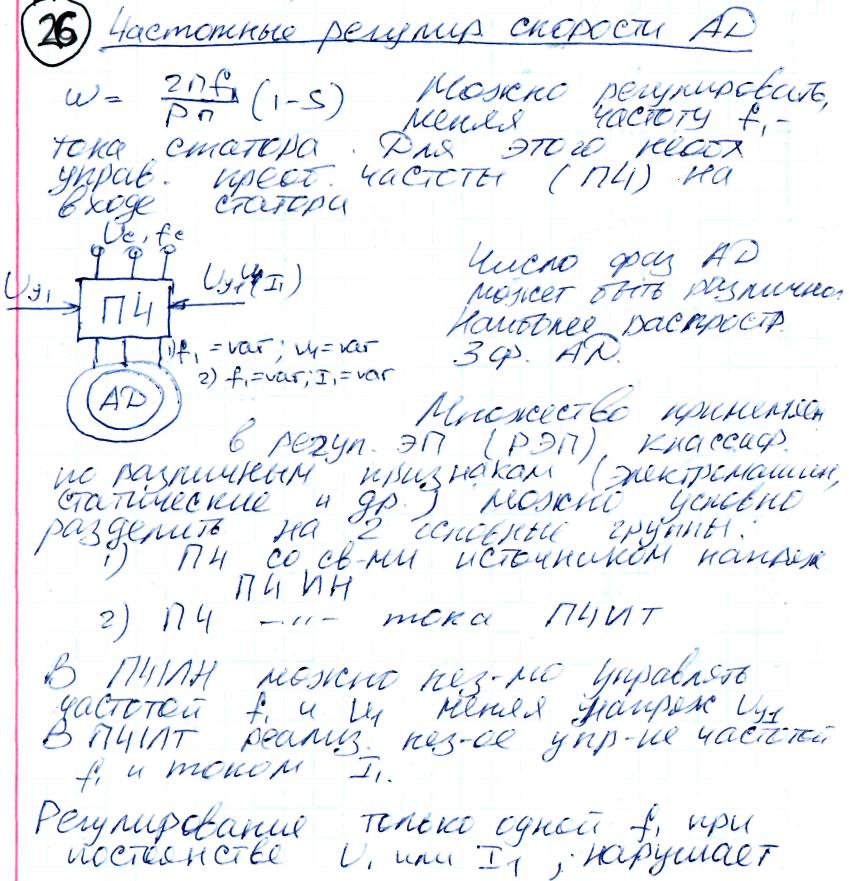 26 Частотные регулир. скорости АД
ω = 2πf₁/Pп (1-S) Можно регулировать,
меняя частоту f₁ -
тока статора. Для этого необх
управ. преоб. частоты (ПЧ) на
входе статора
Uс, fс
Uу₁ ПЧ (I₁)
1) f₁ = var; U₁ = var
2) f₁ = var; I₁ = var
АД
Число фаз АД
может быть различно.
Наиболее распростр.
3 ф. АД.
Множество
в регул. ЭП (РЭП), классиф.
по различным признакам (электромашин,
статические и др.) можно условно
разделить на 2 основные группы:
1) ПЧ со св-ми источником напряж
ПЧИН
2) ПЧ -"- тока ПЧИТ
В ПЧИН можно нез-мо управлять
частотой f₁ и U₁ меняя напряж Uу₁
В ПЧИТ реализ. нез-ое упр-ие частотой
f₁ и током I₁.
Регулирование только одной f₁ при
постоянстве U₁ или I₁, нарушает